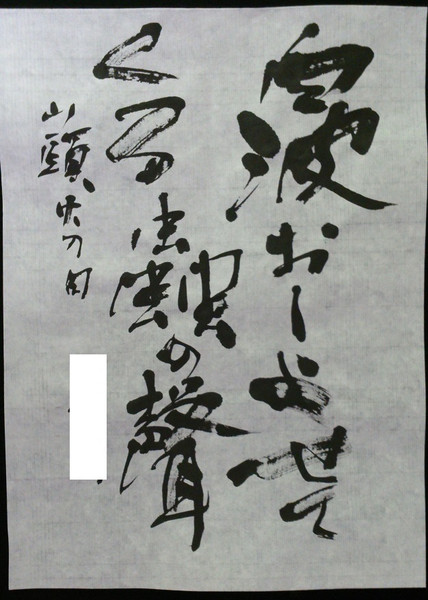 波おしよせて
くる蟲の聲
山頭火の句